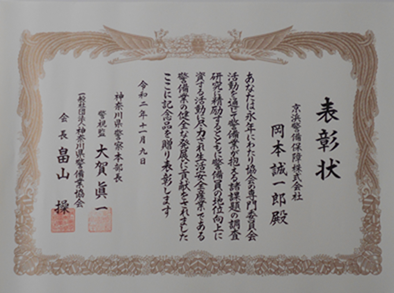 表彰状
京浜警備保障株式会社
岡本誠一郎殿
あなたは永年にわたり協会の専門委員会
活動を通じて警備業が抱える諸課題の調査
研究に精励するとともに警備員の地位向上に
資する活動に尽力され生活安全産業である
警備業の健全な発展に貢献をされました
ここに記念品を贈り表彰します
令和二年十一月九日
神奈川県警察本部長
警視監 大賀眞一
一般社団法人神奈川県警備業協会
会長 畠山操